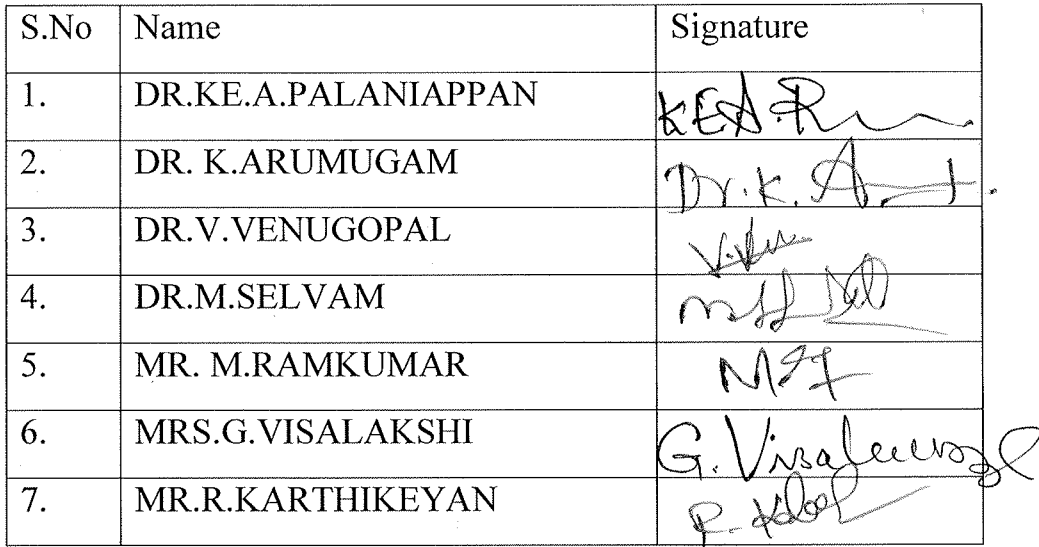 S.No Name Signature
1. DR.KE.A.PALANIAPPAN
2. DR. K.ARUMUGAM Dr. K.
3. DR.V.VENUGOPAL
4. DR.M.SELVAM
5. MR. M.RAMKUMAR
6. MRS.G.VISALAKSHI G.
7. MR.R.KARTHIKEYAN R.